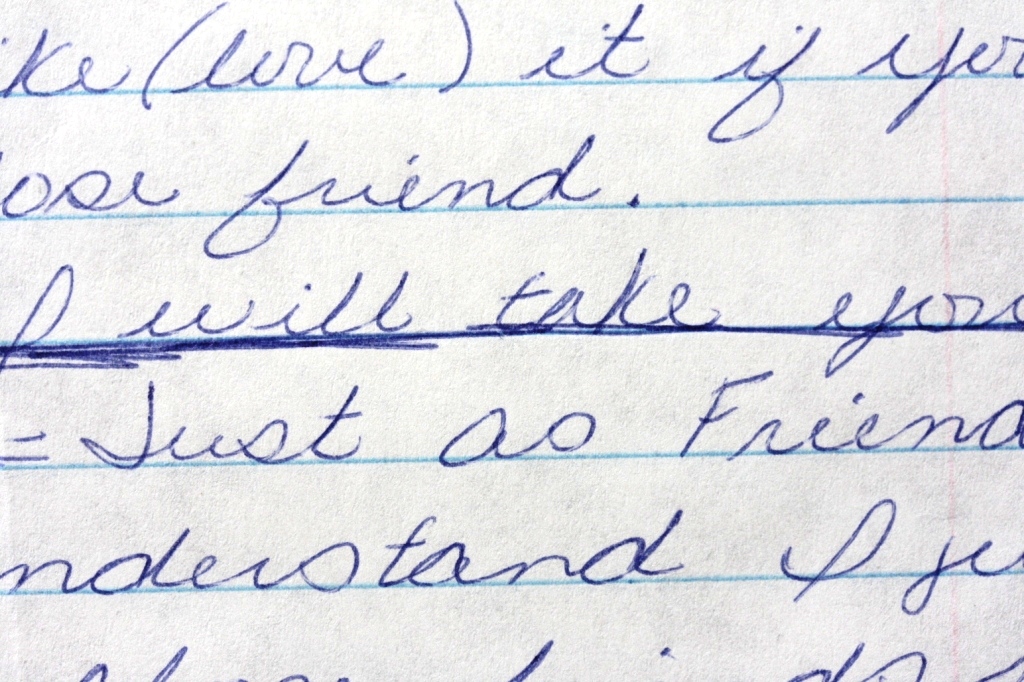 ike (love) it if you
lose friend.
I will take you
= Just as Friend
nderstand I ju